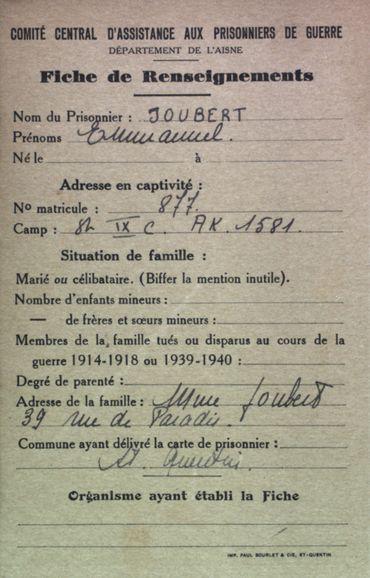 COMITÉ CENTRAL D'ASSISTANCE AUX PRISONNIERS DE GUERRE
DÉPARTEMENT DE L'AISNE
Fiche de Renseignements
Nom du Prisonnier : JOUBERT
Prénoms Emmanuel.
Né le à
Adresse en captivité :
No matricule : 877.
Camp : St IX C. AK. 1581.
Situation de famille :
Marié ou célibataire. (Biffer la mention inutile).
Nombre d'enfants mineurs :
— de frères et sœurs mineurs :
Membres de la famille tués ou disparus au cours de la
guerre 1914-1918 ou 1939-1940 :
Degré de parenté :
Adresse de la famille : Mme Joubert
39 rue de Paradis.
Commune ayant délivré la carte de prisonnier :
St. Quentin.
Organisme ayant établi la Fiche
IMP. PAUL BOURLET & CIE, ST-QUENTIN